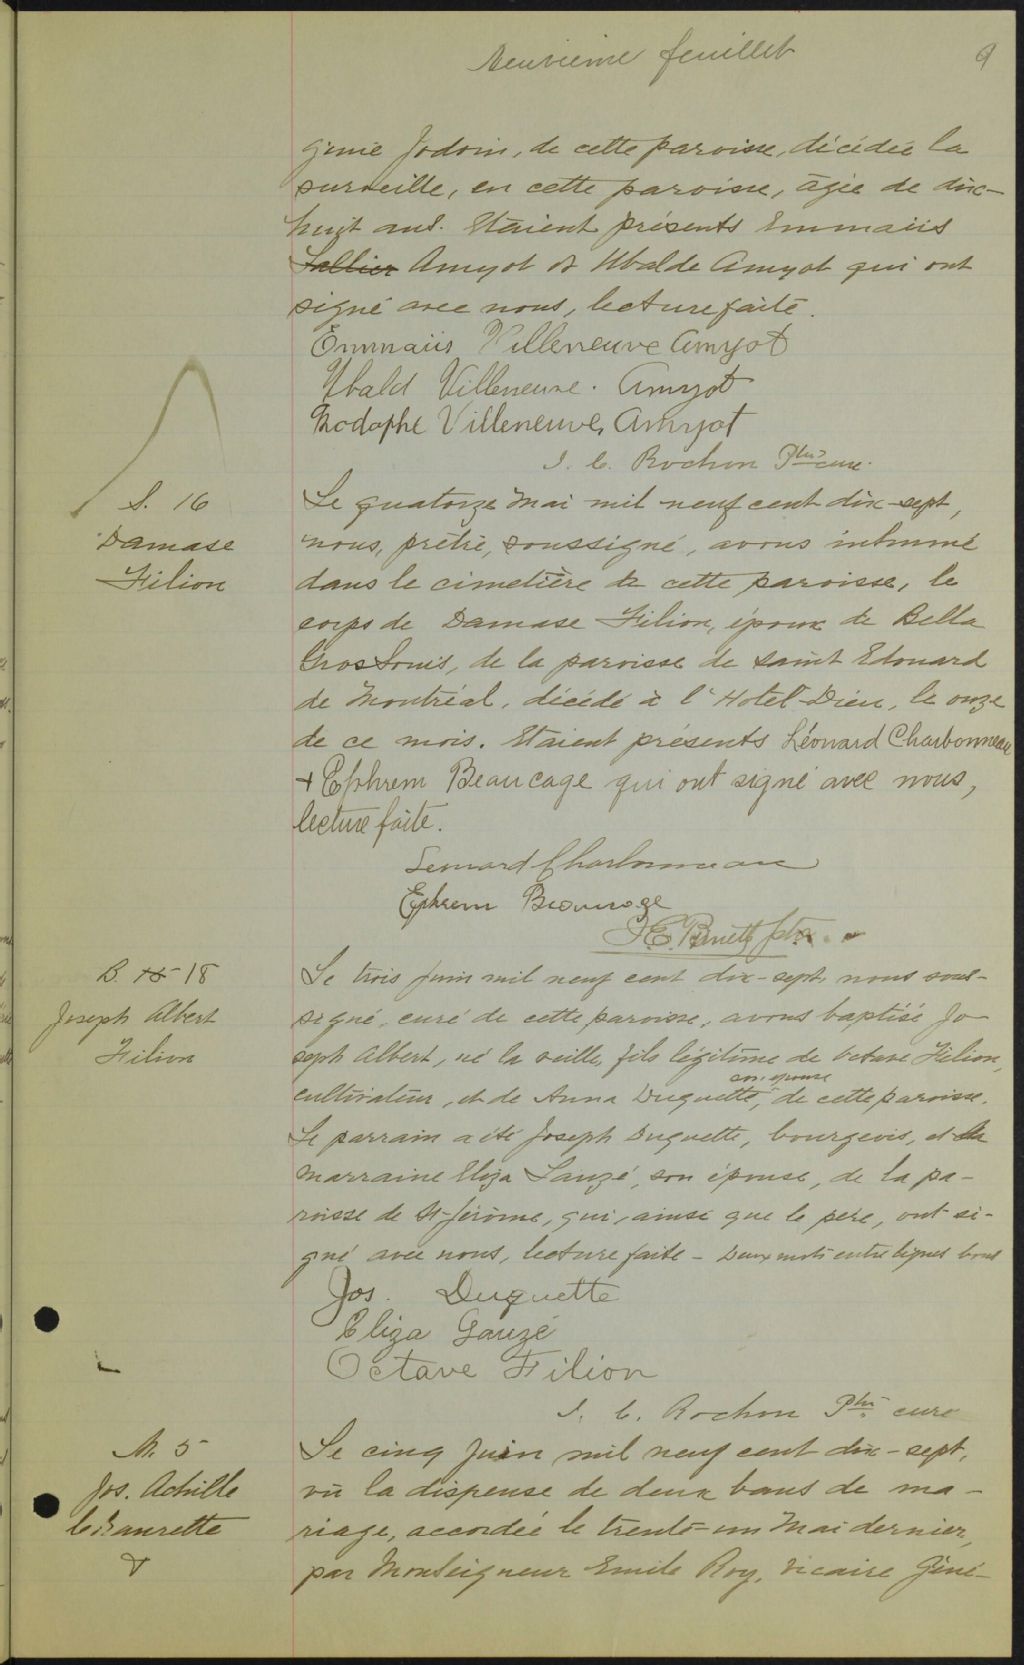 Neuvième feuillet 9
génie Jodoin, de cette paroisse, décédée la
surveille, en cette paroisse, âgée de dix-
huit ans. Etaient présents Emmaüs
Amyot & Ubalde Amyot qui ont
signé avec nous, lecture faite.
Emmaüs Villeneuve Amyot
Ubald Villeneuve. Amyot
Rodolphe Villeneuve, Amyot
J. C. Rochon Ptre curé.
S. 16
Damase
Filion
Le quatorze Mai mil neuf cent dix-sept,
nous, prêtre, soussigné, avons inhumé
dans le cimetière de cette paroisse, le
corps de Damase Filion, époux de Bella
GrosLouis, de la paroisse de Saint Edouard
de Montréal, décédé à l'Hotel-Dieu, le onze
de ce mois. Etaient présents Léonard Charbonneau
+ Ephrem Beaucage qui ont signé avec nous,
lecture faite.
Leonard Charbonneau
Ephrem Beaucage
B. 18
Joseph Albert
Filion
Le trois Juin mil neuf cent dix-sept, nous sous-
signé, curé de cette paroisse, avons baptisé Jo
seph Albert, né la veille, fils légitime de Octave Filion,
son épouse
cultivateur, et de Anna Duquette, de cette paroisse.
Le parrain a été Joseph Duquette, bourgeois, et la
marraine Eliza Lauzé, son épouse, de la pa-
roisse de St-Jérôme, qui, ainsi que le père, ont si-
gné avec nous, lecture faite - Deux mots entre lignes bons
Jos. Duquette
Eliza Gauzé
Octave Filion
J. C. Rochon Ptre curé
M. 5
Jos. Achille
&
Le cinq Juin mil neuf cent dix-sept,
vû la dispense de deux bans de ma-
riage, accordée le trente-un Mai dernier,
par Monseigneur Emile Roy, Vicaire Géné-